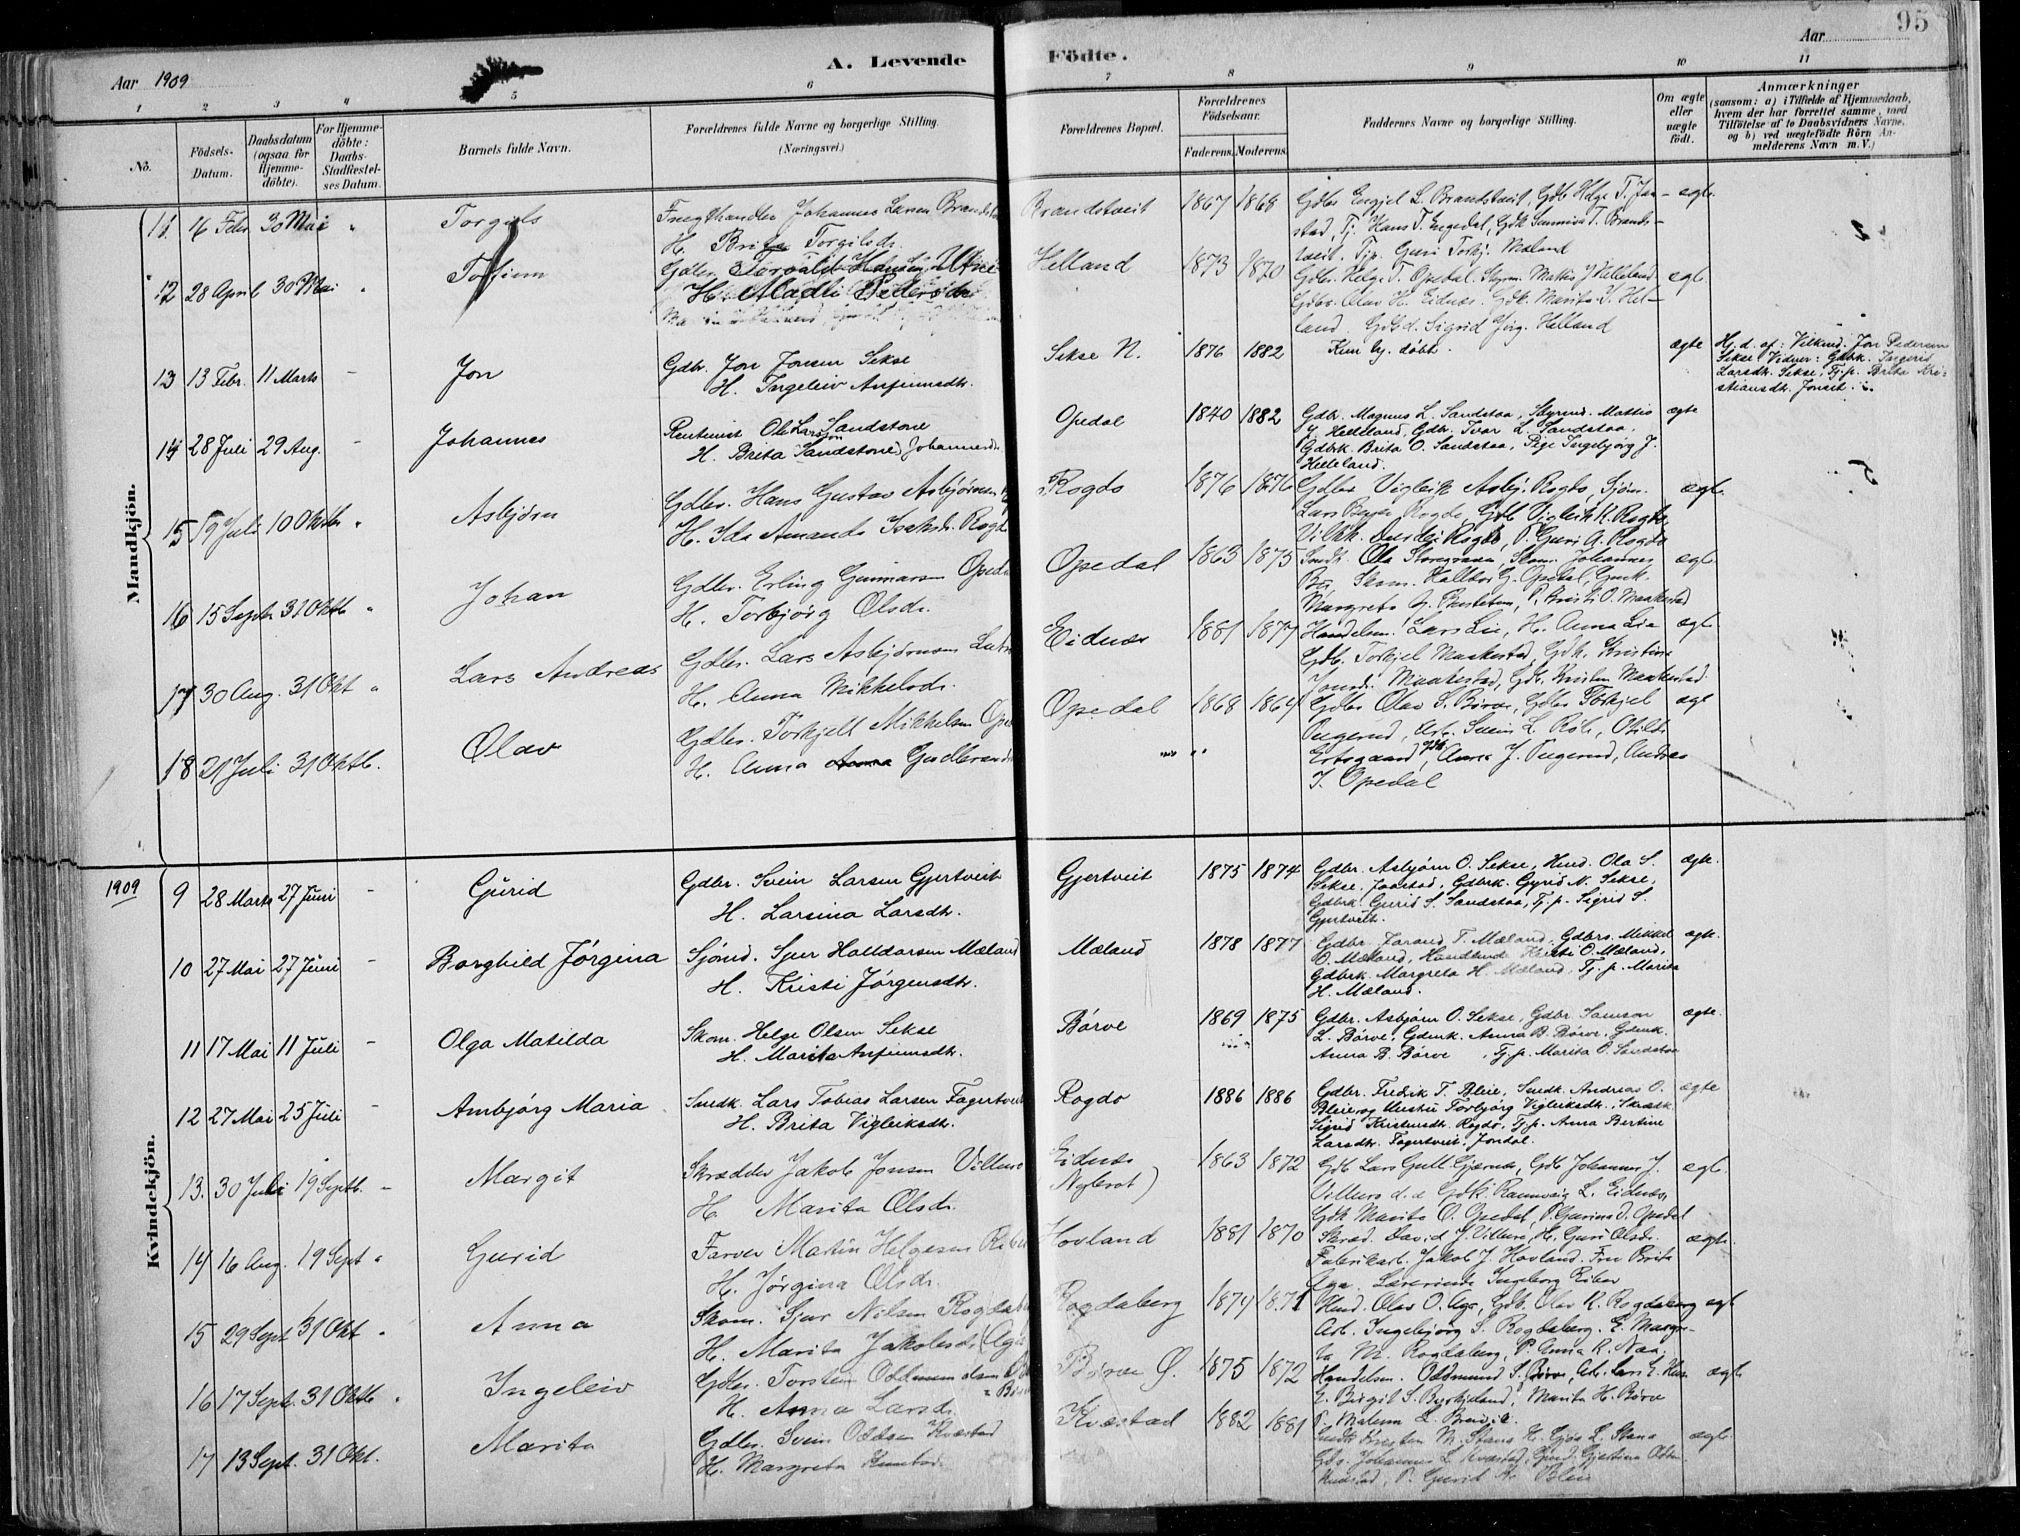 95
Aar 1909
A. Levende
Födte.
Aar
1
2
3
4
5
6
7
8
9
10
11
No.
Födsels-
Datum.
Daabsdatum
(ogsaa for
Hjemme-
döbte).
For Hjemme-
döbte:
Daabs-
Stadfæstel-
ses Datum.
Barnets fulde Navn.
Forældrenes fulde Navne og borgerlige Stilling.
(Næringsvei.)
Forældrenes Bopæl.
Forældrenes
Födselsaar.
Faderens.
Moderens.
Faddernes Navne og borgerlige Stilling.
Om ægte
eller
uægte
födt.
Anmærkninger
(saasom: a) i Tilfælde af Hjemmedaab,
hvem der har forrettet samme, med
Tilföielse af to Daabsvidners Navne,
og b) ved uægtefödte Börn An-
melderens Navn m. V.)
Mandkjön.
11. 6 Febr. 30 Mai " Torgils
Johannes Larsen
H. Brita Torgilsdr.
Brandstveit 1867 1868
Gdbr Engjel L. Brandstveit, Gdb Helge T. Jaa-
stad, Tj. Hans T. Engedal, Gdk Sunniva T. Brands-
tveit, Tjp. Guri Torkj. Mæland
ægte
12 28 April 30 Mai "
Gdbr. Torvald Hansen Utne
H.
Helland 1873 1870
Gdbr. Helge T. Opedal. Skom. Mattis J Helleland
Gdbr. Olav H. Eidnæs. Gdk. Marita S. Hel-
land. Gdbd. Sigrid Jørg. Helland
ægt.
13 13 Febr. 11 Marts - Jon
Gdbr. Jon Jonsen Sekse
H. Ingeleiv Anfinnsdtr.
Sekse N. 1876 1882
Kun hj. døbt.
ægte
H. d. af: Vilkmd. Jon Pedersen
Sekse Vidner: Gdbrk. Ingerid
Larsdtr. Sekse, Tj. p. Brita Kri-
stiansdtr. Jonset.
14 28 Juli 29 Aug. Johannes
Rentenist Ole Larsson Sandstone
H. Brita Sandstone Johannesdr.
Opedal 1840 1882
Gdbr. Magnus L. Sandstaa, Skrmd. Mattis
J. Helleland, Gdbr. Ivar L. Sandstaa,
Gdbrk. Brita O. Sandstaa, Pige Ingebjørg J.
Helleland.
ægte
15 19 Juli 10 Oktbr " Asbjørn
Gdbr. Hans Gustav Asbjørnsen
H. Ida Amanda Isaksdr. Rogde
Rogdo 1876 1876
Gdbr Vigleik Asbj. Rogdo, Sjøm.
Lars Rogde, Gdb Vigleik K. Rogdo,
Rogdo, P. Guri A. Rogdo
ægt.
16 15 Septbr 31 Oktb " Johan
Gdbr. Erling Gunnarsen Opedal
H. Torbjørg Olsdr.
Opedal 1863 1875
Smdk. Ola Storegraven, Skom. Johannes
Bu, Skom. Hallvor G. Opedal, Gmk.
Margreta, P. Kristi O. Maakestad
ægt.
17 30 Aug. 31 Okt " Lars Andreas
Gdbr. Lars Asbjørnsen
H. Anna Mikkelsdr.
Eidnæs 1881 1877
Handelsm. Lars Lie, H. Anna Lie
Gdb. Torkjel Maakestad, Gdk. Kristina
Jonsdr. Maakestad, Gdt. Kristen Maakestad.
ægt.
18 21 Juli 31 Oktb. Olav
Gdbr. Torkjell Mikkelsen Opedal
H. Anna Gudbrands
Opedal 1868 1864
Gdbr Olav S. Børve, Gdbr Torkjel
Ungerud, Arb. Svein L. Røte, Otilde
Ertsgaard, Anna J. Ungerud, Andrea
T. Opedal
ægt
1909
Kvindekjön.
9 28 Marts 27 Juni - Gurid
Gdbr. Svein Larsen Gjertveit
H. Larsina Larsdtr.
Gjertveit 1875 1874
Gdbr. Asbjørn O. Sekse, Hmd. Ola S.
Sekse, Jaastad, Gdbrk. Gyrid N. Sekse,
Gdbrk. Gurid S. Sandstaa, Tj. p. Sigrid S.
Gjertveit.
ægte.
10 27 Mai 27 Juni - Borghild Jørgina
Sjømd. Sjur Halldorsen Mæland
H. Kristi Jørgensdtr.
Mæland 1878 1877
Gdbr. Tarand T. Mæland, Gdbrs. Mikkel
O. Mæland, Kristi O. Mæland,
Gdbrk. Margreta H. Mæland, Tj. p. Marita
H. Mæland.
ægt.
11 17 Mai 11 Juli - Olga Matilda
Skom. Helge Olsen Sekse
H. Marita Anfinnsdtr.
Børve 1869 1875
Gdbr. Asbjørn O. Sekse, Gdbr. Samson
L. Børve, Gdmk. Anna B. Børve, Gdmk.
Anna B. Børve, Tj. p. Marita O. Sandstaa
ægte.
12 27 Mai 25 Juli - Ambjørg Maria
Smedk. Lars Tobias Larsen Fagertveit
H. Brita Vigleiksdtr.
Rogdo 1886 1886
Gdbr. Fredrik T. Bleie, Smdk. Andreas O.
Bleie og Hustru Torbjørg Vigleiksdtr., Skrædk.
Sigrid Kristensdtr. Rogdo, Tj. p. Anna Bertine
Larsdtr. Fagertveit, Jondal.
ægte
13. 30 Juli 19 Septb. - Margit
Skrædder Jakob Jonsen Villure
H. Marita Olsdr.
Eidnæs
Nybrot) 1863 1872
Gdb Lars Gutt. Gjernes, Gdb Johannes J.
Villure d. a Gdk. Rannveig L. Eidnæs,
Gdk Marita O. Opedal, P. Gurina D. Opedal
ægt.
14 16 Aug. 19 Sept " Gurid
Farver Martin Helgesen Riber
H. Jørgina Olsdr.
Hovland 1881 1870
Skræd. David J. Villure, H. Guri Olsdr.
Fabrikarb. Jakob J. Hovland. Fru Brita
Aga. Lærerinde Ingeborg Riber
ægt.
15 29 Sept 31 Okt " Anna
Skom. Sjur Nilsen Rogdaberg
H. Marita Jakobsdr. (Aga
Rogdaberg 1874 1871
Hmd. Olav O. Aga, Gdb. Olav K. Rogdaberg
Arb. Ingebjørg S. Rogdaberg. E. Margre-
ta M. Rogdaberg, P. Anna K. Naa
ægt
16 17 Sept. 31 Oktb " Ingeleiv
Gdbr. Torstein Oddmundsen
H. Anna Larsdr.
Børve Ø. 1875 1872
Handelsm. Oddmund S. Børve, Arb. Lars E. Hus
E. Birgit S. Byrkjeland, Marita H. Børve
P. Malena L. Brevik.
ægt
17 13 Sept. 31 Okt. Marita
Gdbr. Svein Oddsen Kvæstad
H. Margreta
Kvæstad 1882 1881
Torsten M. Stana H. Gjøa L. Stana
Gdb. Johannes L. Kvestad, Gjertina Odds
Kvæstad, P. Gurid K. Bleie
ægt.